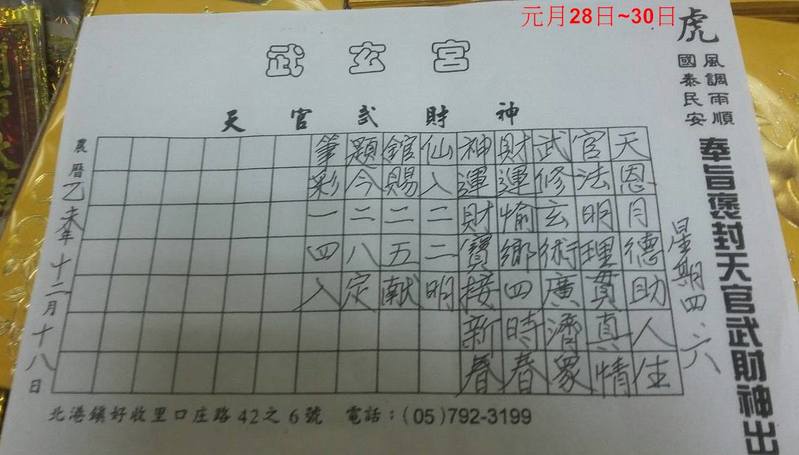 元月28日~30日
武玄宮
天官武財神
虎
風調雨順
國泰民安
奉旨褒封天官武財神出
星期四.六
天恩月德助人生
官法明理貫真情
武修玄術廣濟眾
財運愉鄉四時春
神運財寶接新春
仙入二二明
館賜二五献
題今二八定
筆彩一四入
農曆乙未年十二月十八日
北港鎮好收里口庄路42之6號 電話：(05)792-3199